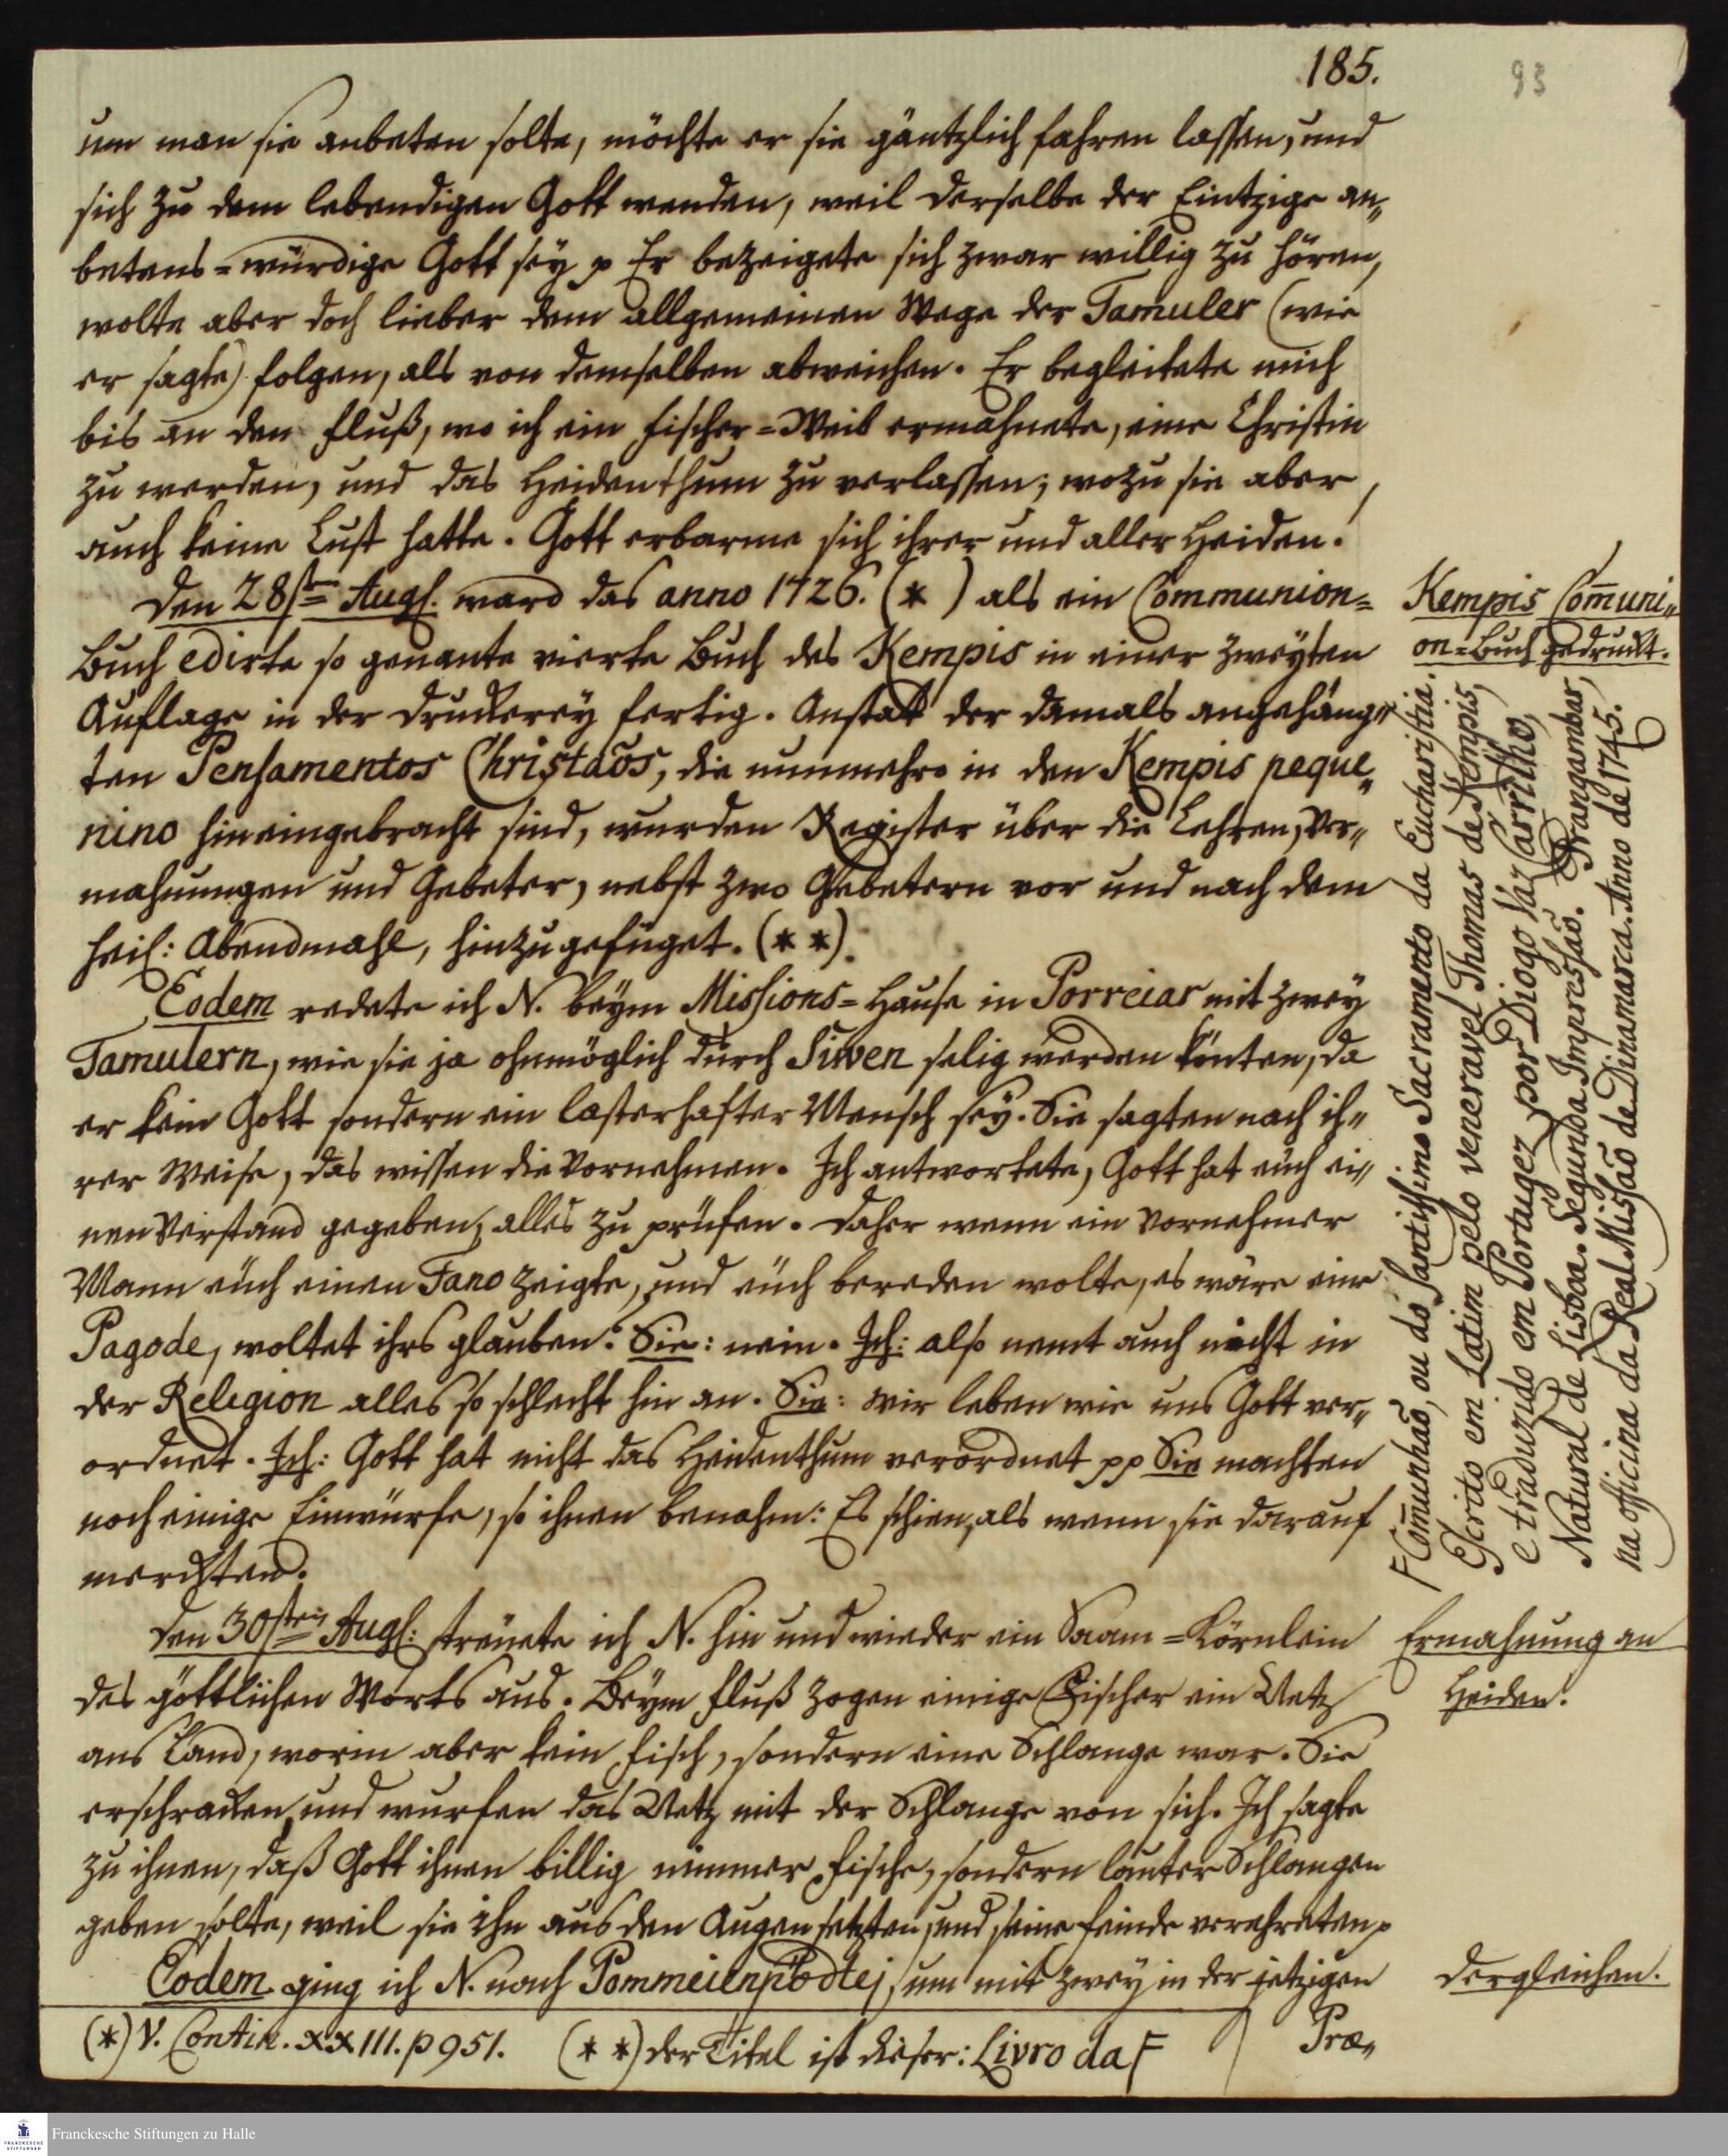 185.
93
um man sie anbeten solte, möchte er sie gäntzlich fahren lassen, und
sich zu dem lebendigen Gott wenden, weil derselbe der Eintzige an„
betens-würdige Gott sey p Er bezeigete sich zwar willig zu hören,
wolte aber doch lieber dem allgemeinen Wege der Tamuler (wie
er sagte) folgen, als von demselben abweichen. Er begleitete mich
bis an den Fluß, wo ich ein Fischer-Weib ermahnete, eine Christin
zu werden, und das Heidenthum zu verlassen; wozu sie aber
auch keine Lust hatte. Gott erbarme sich ihrer und aller Heiden.
Den 28st= Augs. ward das anno 1726. (*) als ein Communion=
Buch edirte so genante vierte Buch des Kempis in einer zweyten
Auflage in der Druckerey fertig. Anstatt der damals angehäng„
ten Pensamentos Christaõs, die nunmehro in den Kempis peque„
nino hineingebracht sind, wurden Register über die Lehren, Ver„
mahnungen und Gebeter, nebst zwo Gebetern vor und nach dem
heil: Abendmahl, hinzugefüget. (**).
Kempis Com̄uni„
on=Buch gedruckt.
Eodem redete ich N. beym Missions=Hause in Porreiar mit zwey
Tamulern, wie sie ja ohnmöglich durch Siwen selig werden könten, da
er kein Gott sondern ein lasterhafter Mensch sey. Sie sagten nach ih„
rer Weise, das wissen die Vornehmen. Ich antwortete, Gott hat euch ei„
nen Verstand gegeben, alles zu prüfen. Daher wenn ein Vornehmer
Mann euch einen Fano zeigte, und euch bereden wolte, es wäre eine
Pagode, woltet ihrs glauben: Sie: nein. Ich: also nemt auch nicht in
der Religion alles so schlecht hin an. Sie: wir leben wie uns Gott ver„
ordnet. Ich: Gott hat nicht das Heidenthum verordnet pp Sie machten
noch einige Einwürfe, so ihnen benahm: Es schien, als wenn sie darauf
merckten.
Den 30sten Augs: streuete ich N. hin und wieder ein Saam=Körnlein
des göttlichen Worts aus. Beym Fluß zogen einige Fischer ein Netz
ans Land, worin aber kein Fisch, sondern eine Schlange war. Sie
erschracken und wurfen das Netz mit der Schlange von sich. Ich sagte
zu ihnen, daß Gott ihnen billig nimmer Fische, sondern lauter Schlangen
geben solte, weil sie ihn aus den Augen setzten, und seine Feinde verehreten p
Ermahnung an
Heiden.
Eodem ging ich N. nach Pommeienpödtej, um mit zwey in der jetzigen
dergleichen.
Præ„
(*) V. Contin. XXIII. p 951. (**) der Titel ist dieser: Livro da F
F Com̄unhaõ, ou do Santissimo Sacramento da Eucharistia.
Escrito em Latim pelo veneravel Thomas de Kempis,
e traduzido em Portugez por Diogo Vaz Carrilho,
Natural de Lisboa. Segunda Impressaõ. Trangambar,
na officina da Real Missaõ de Dinamarca. Anno de 1745.
Franckesche Stiftungen zu Halle
FRANCKESCHE
STIFTUNGEN